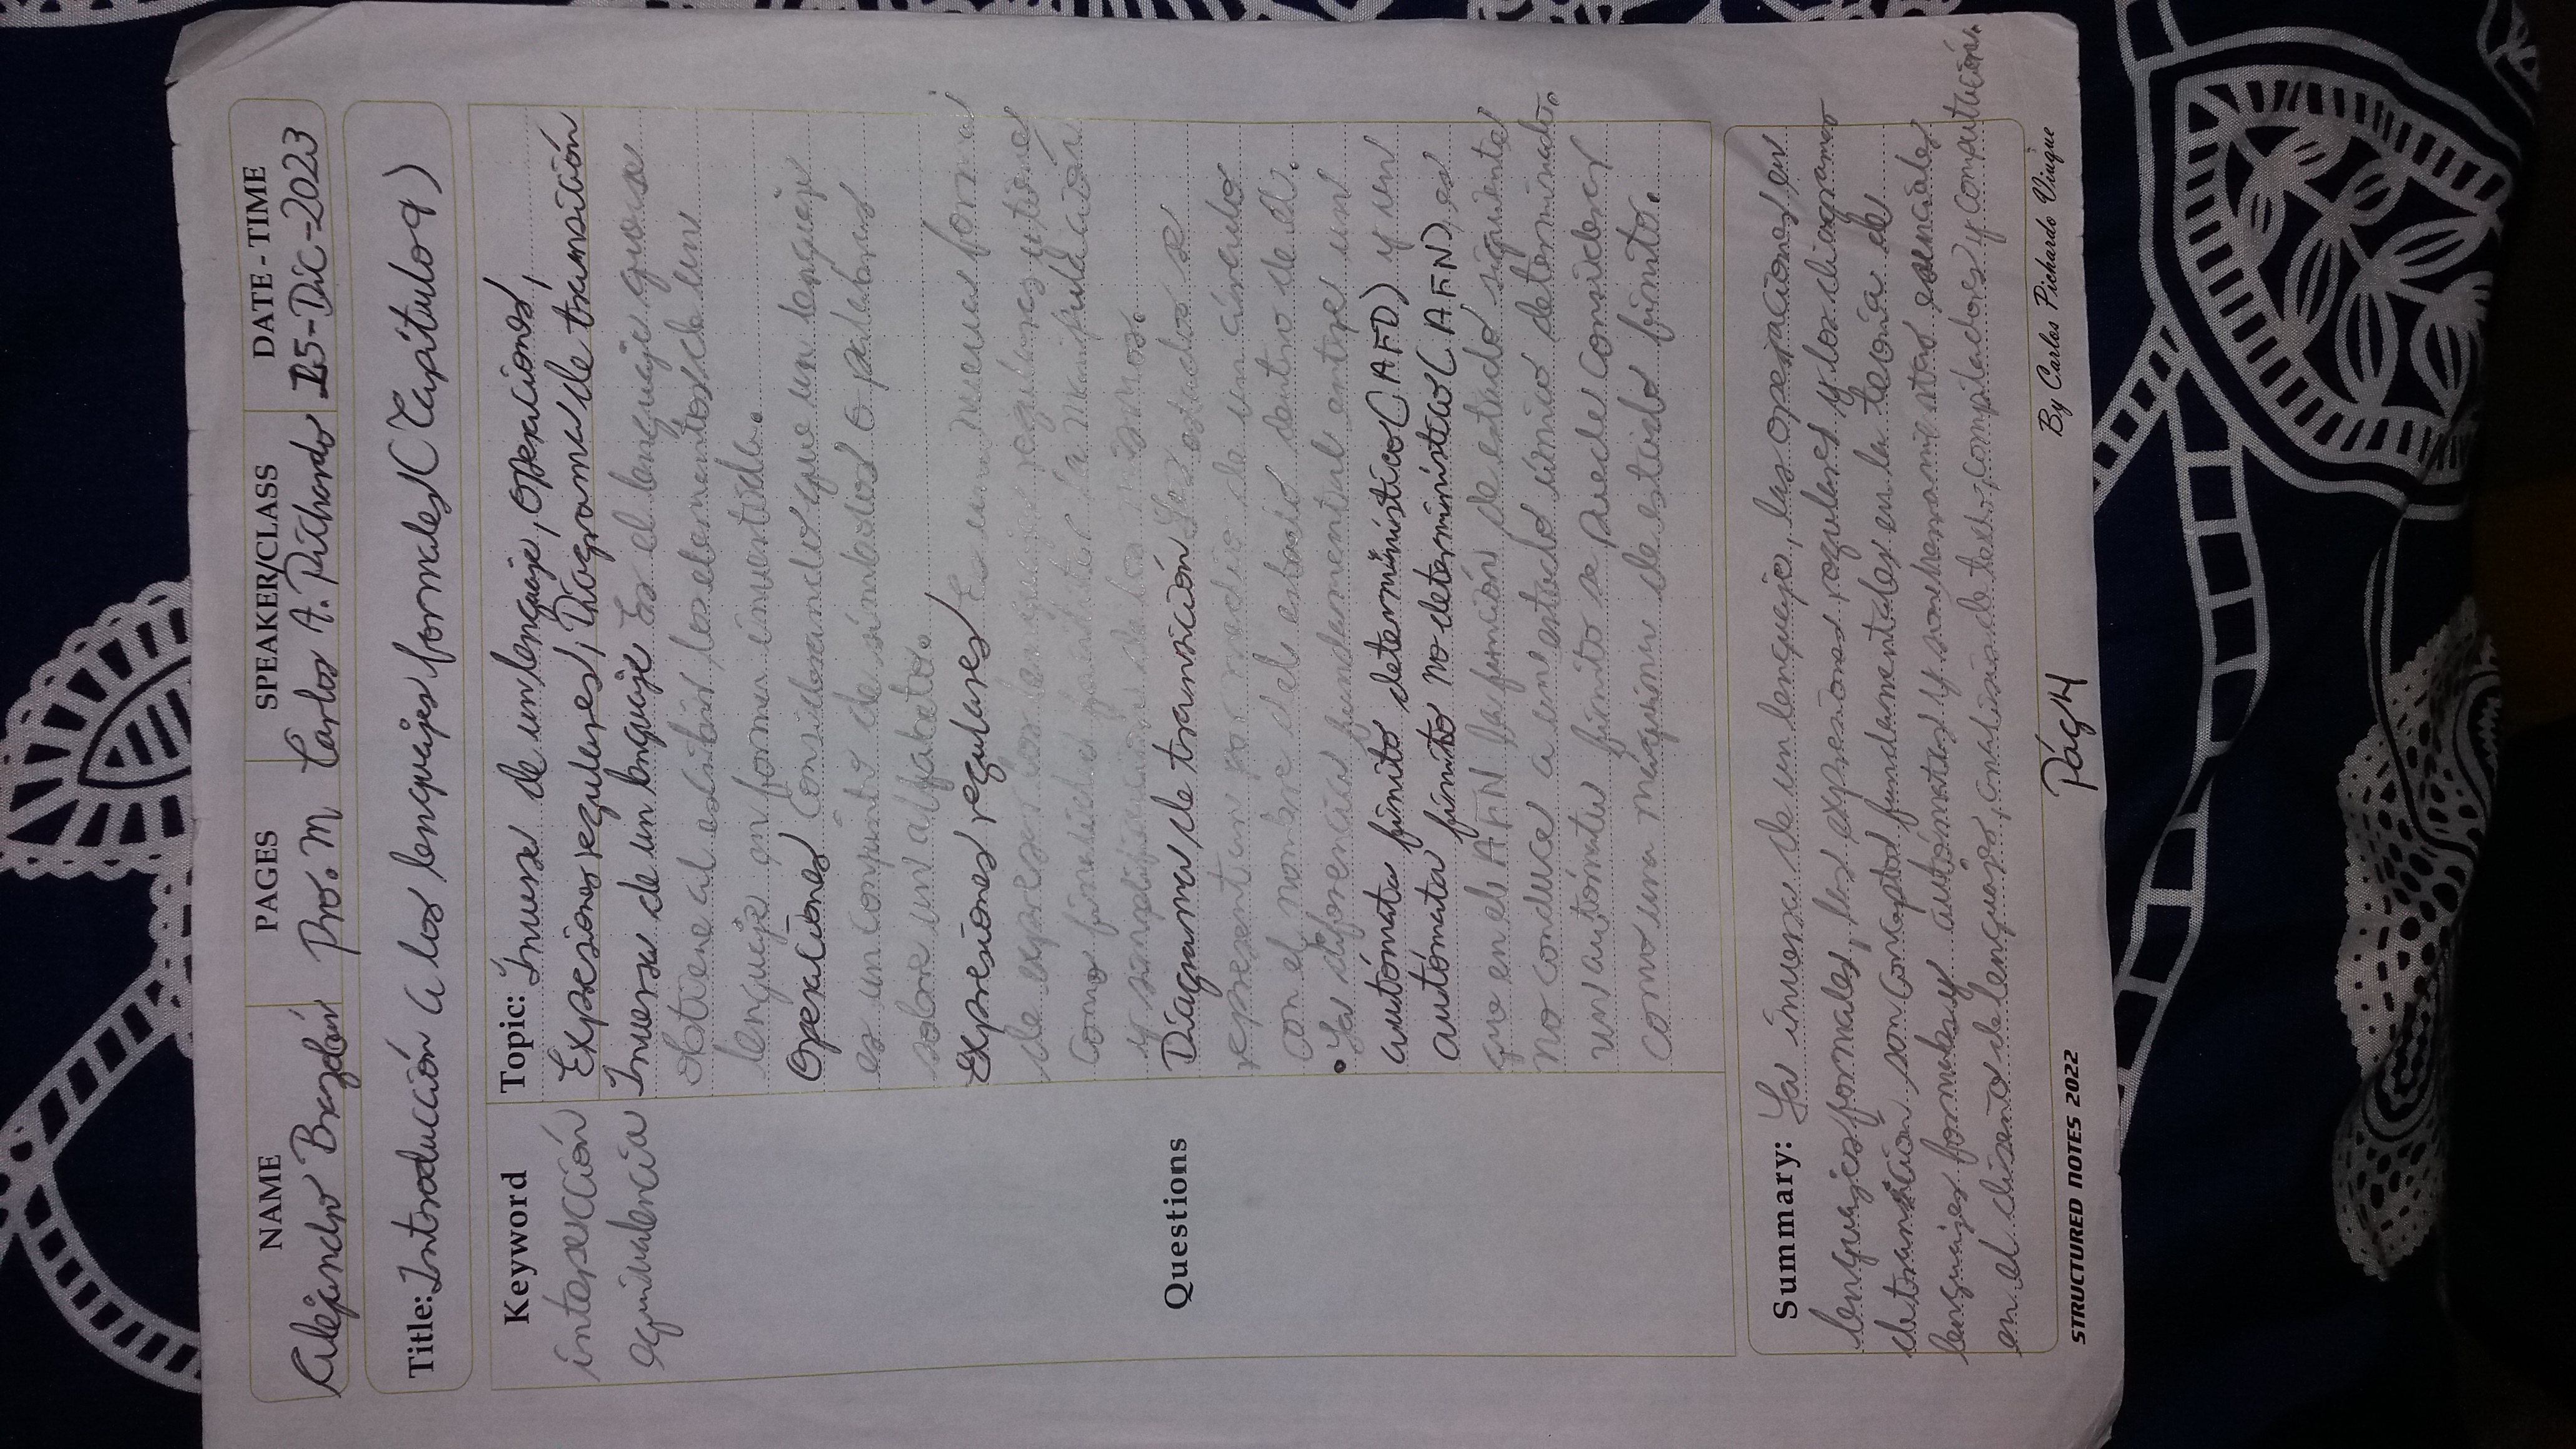 NAME PAGES SPEAKER/CLASS DATE - TIME
Alejandro Brazobán Pro. M Carlos A. Pichardo 15-Dic-2023
Title: Introducción a los lenguajes formales (Capítulo 9)
Keyword
intersección
equivalencia
Topic: Inversa de un lenguaje, Operaciones,
Expresiones regulares, Diagrama de transición
Inversa de un lenguaje Es el lenguaje que se
obtiene al escribir los elementos de un
lenguaje en forma invertida.
Operaciones Considerando que un lenguaje
es un conjunto de símbolos o palabras
sobre un alfabeto.
Expresiones regulares Es una nueva forma
de expresar los lenguajes regulares y tiene
como finalidad facilitar la manipulación
y simplificación de los mismos.
Questions
Diagrama de transición Los estados se
representan por medio de un círculo
con el nombre del estado dentro de él.
• La diferencia fundamental entre un
autómata finito determinístico (AFD) y un
autómata finito no determinístico (AFN), es
que en el AFN la función de estado siguiente
no conduce a un estado único determinado.
un autómata finito se puede considerar
como una máquina de estado finito.
Summary: La inversa de un lenguaje, las operaciones en
lenguajes formales, las expresiones regulares y los diagramas
de transición son conceptos fundamentales en la teoría de
lenguajes formales y autómatas y son herramientas esenciales
en el diseño de lenguajes, analisis de texto, compiladores y computación.
STRUCTURED NOTES 2022 Pág 4 By Carlos Pichardo Viuque